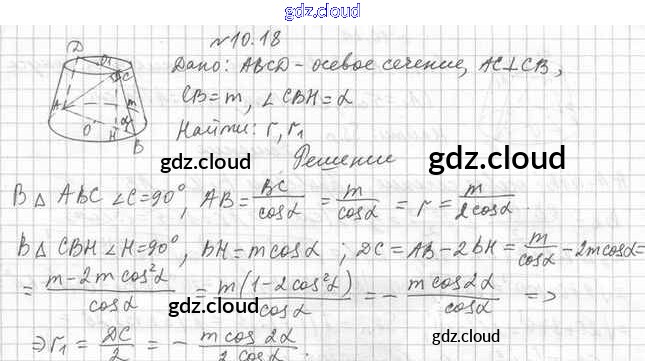 gdz.cloud
№10.18
D O₁ C
Дано: ABCD - осевое сечение, AC⊥CB,
A m
CB = m, ∠CBH = α
O H α B
Найти: r, r₁
Решение
gdz.cloud
gdz.cloud
В △ ABC ∠C=90°, AB = BC/cosα = m/cosα = r = m/2cosα.
В △ CBH ∠H=90°, BH = m cosα ; DC = AB - 2BH = m/cosα - 2m cosα =
= (m - 2m cos²α)/cosα = m(1 - 2cos²α)/cosα = - m cos2α/cosα =>
gdz.cloud
=> r₁ = DC/2 = - m cos 2α/2 cosα.
gdz.cloud